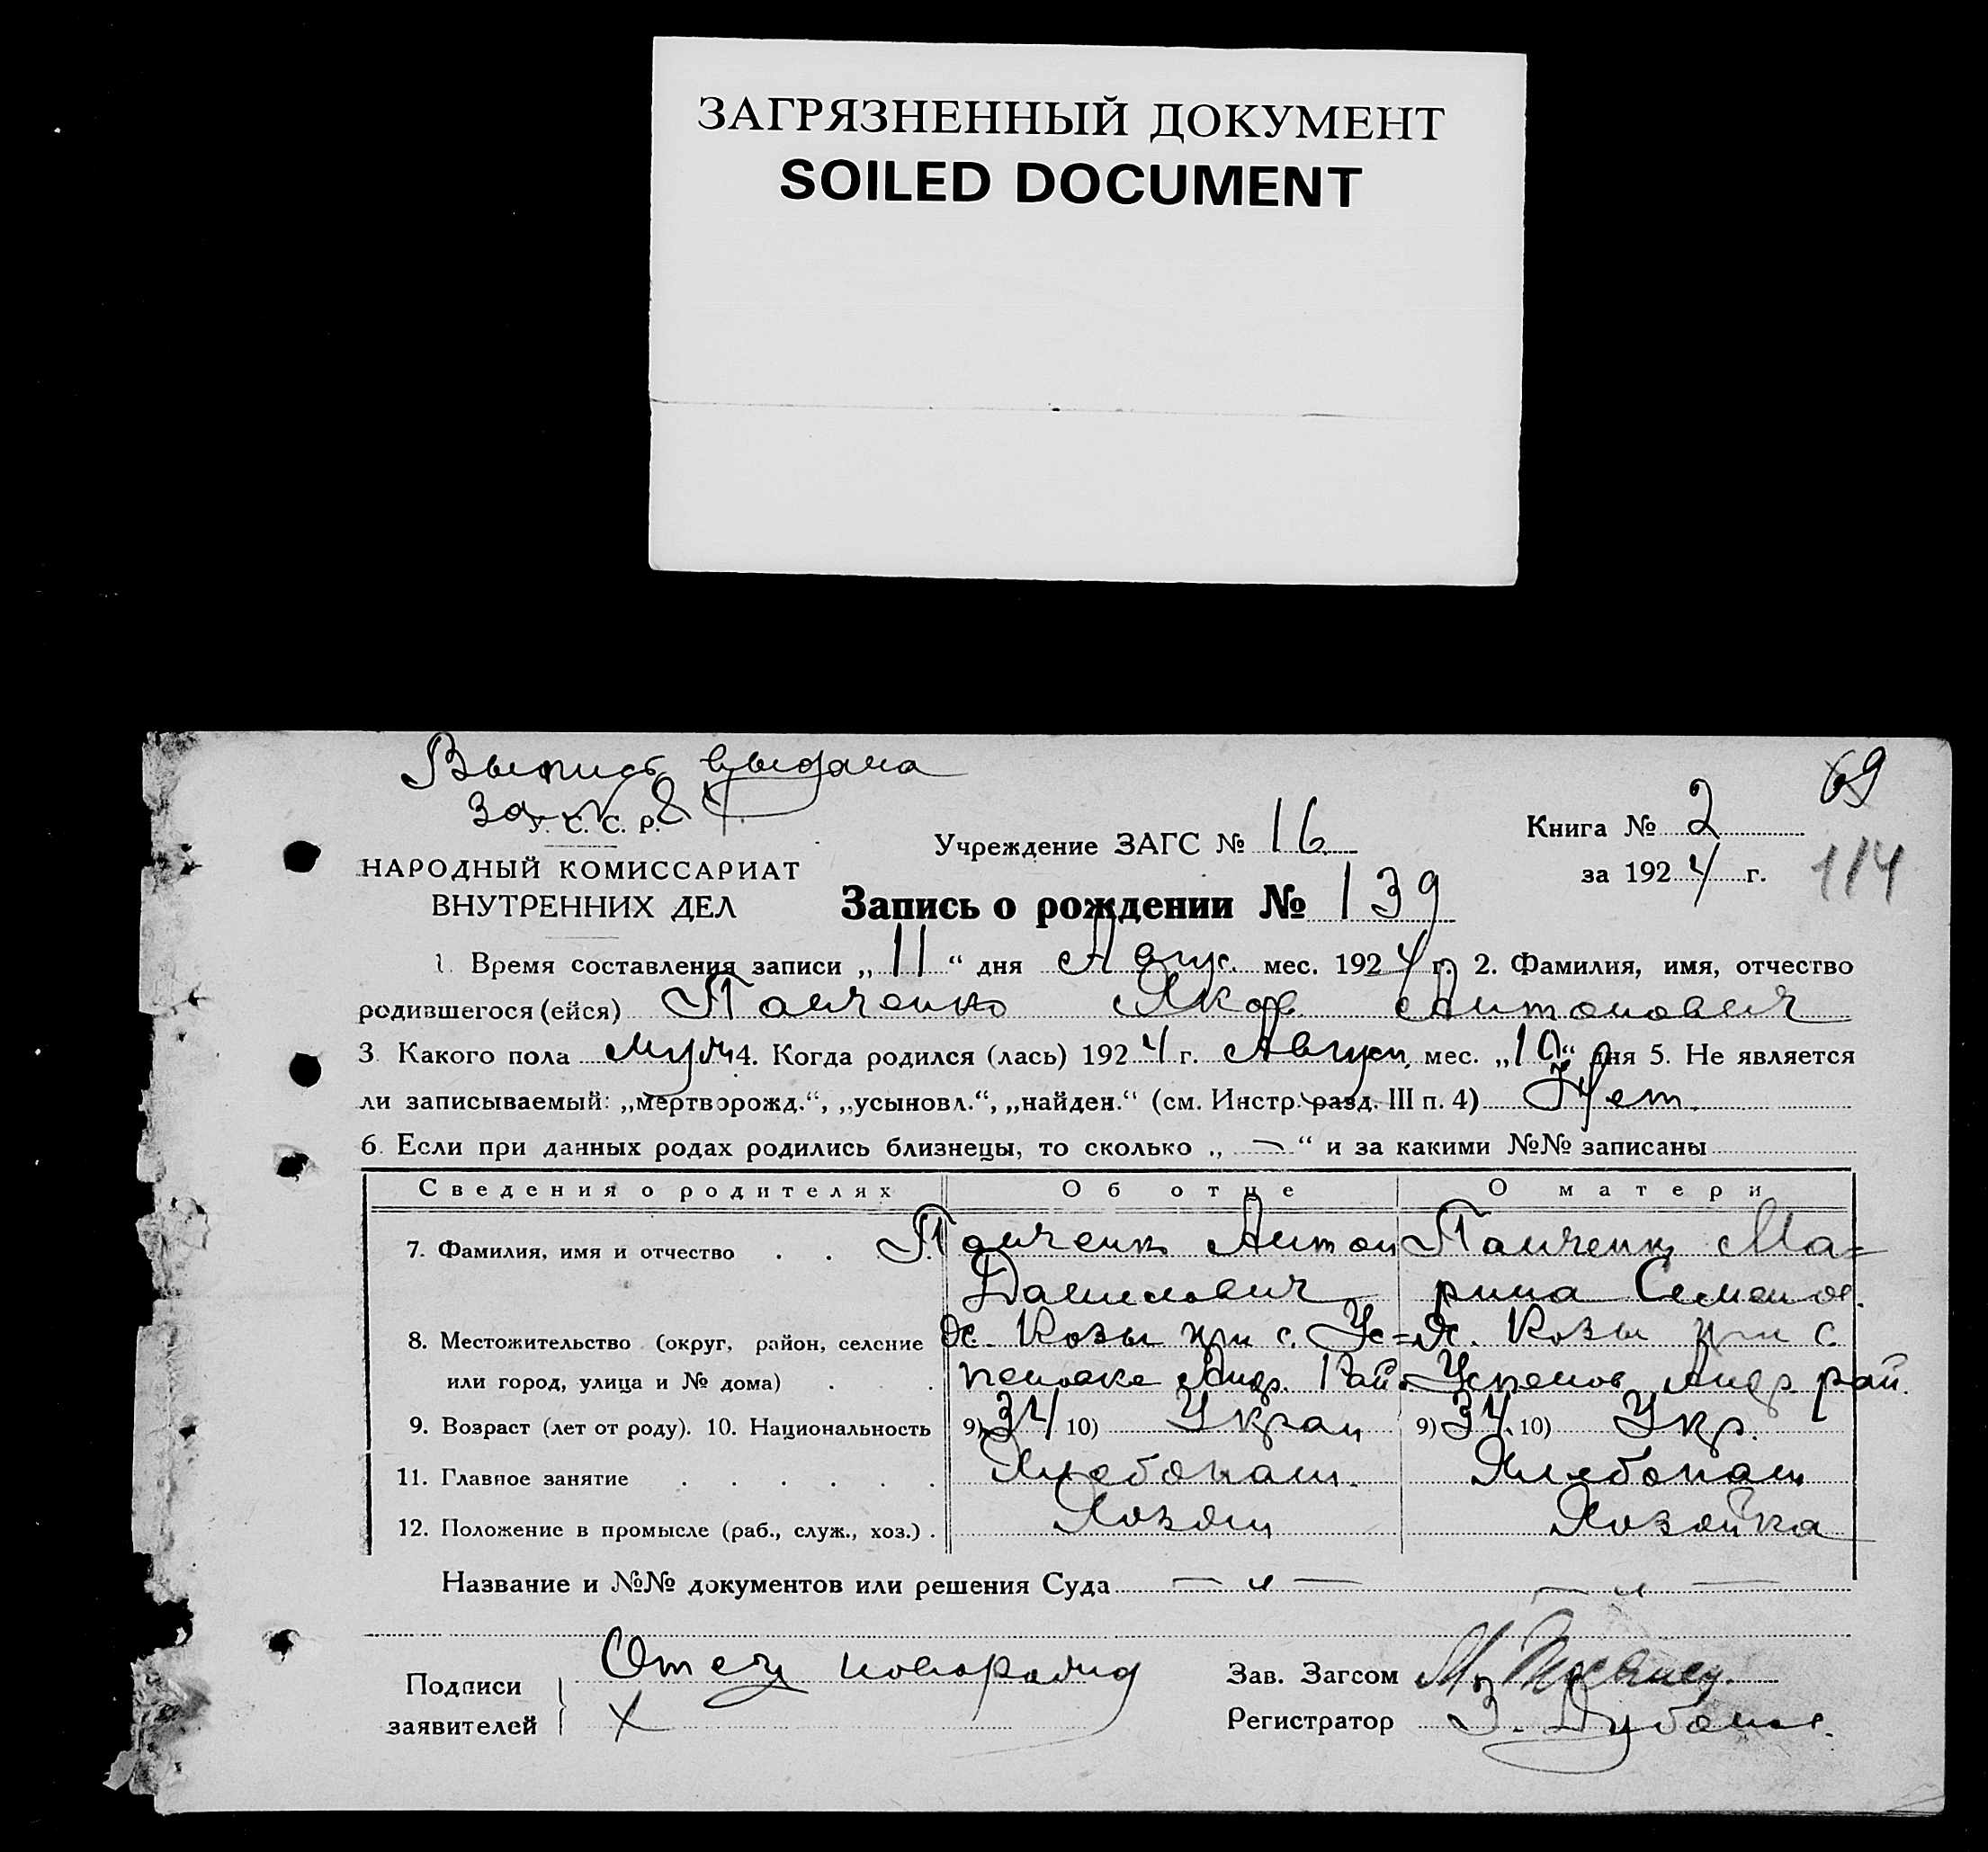 ЗАГРЯЗНЕННЫЙ ДОКУМЕНТ
SOILED DOCUMENT
Выпись выдана
за № 8
69
У. С. С. Р.
Учреждение ЗАГС № 16
Книга № 2
НАРОДНЫЙ КОМИССАРИАТ
за 1924 г.
114
ВНУТРЕННИХ ДЕЛ
Запись о рождении № 139
1. Время составления записи „11“ дня Авгус. мес. 1924 г. 2. Фамилия, имя, отчество
родившегося (ейся) Панченко Яков Антонович
3. Какого пола муж 4. Когда родился (лась) 1924 г. Август. мес. „10“ дня 5. Не является
ли записываемый: „мертворожд.“, „усыновл.“, „найден.“ (см. Инстр. разд. III п. 4) Нет.
6. Если при данных родах родились близнецы, то сколько „—“ и за какими №№ записаны
Сведения о родителях Об отце О матери
7. Фамилия, имя и отчество . . Панченко Антон Панченко Ма=
Данилович рина Семенов.
8. Местожительство (округ, район, селение х. Козы при с. Ус= х. Козы при с.
или город, улица и № дома) . . . пеновке Андр. Рай. Успенов Андр. рай.
9. Возраст (лет от роду). 10. Национальность 9) 34 10) Украи 9) 34. 10) Укр.
11. Главное занятие . . . . . . Хлебопаш. Хлебопаш
12. Положение в промысле (раб., служ., хоз.) . Хозяин Хозяйка
Название и №№ документов или решения Суда — „ — — „ —
Подписи Отец новорожд Зав. Загсом М.
заявителей Х Регистратор З.